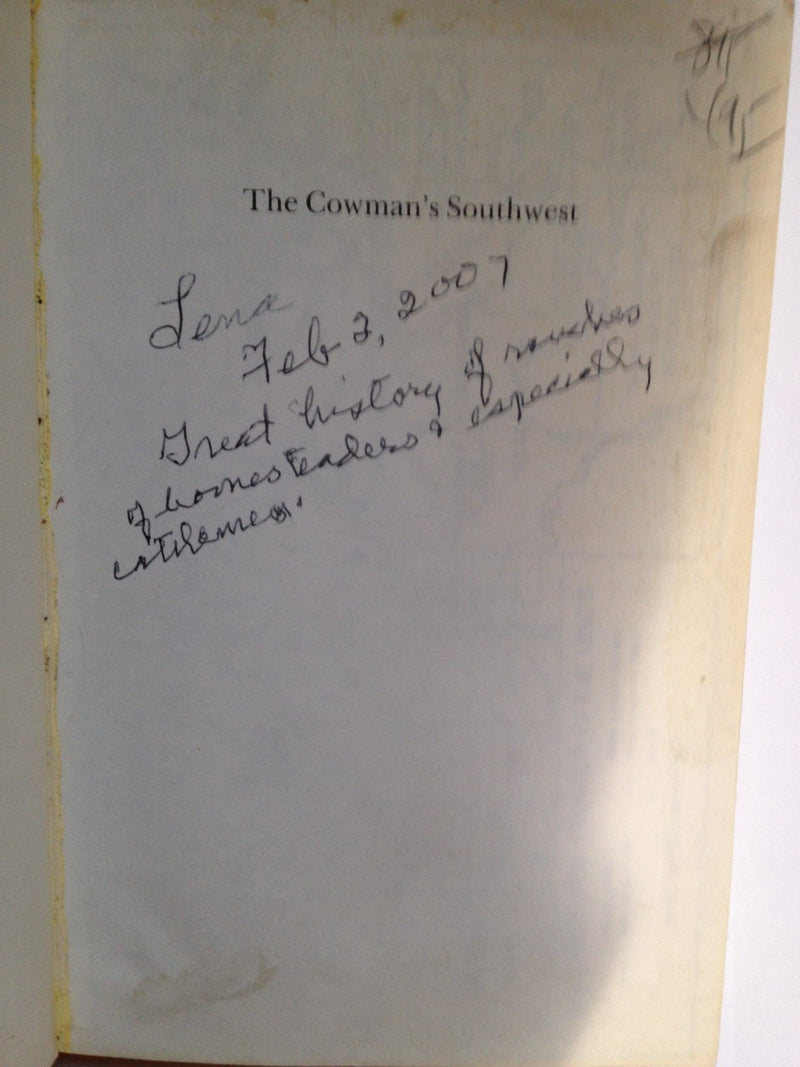 The Cowman's Southwest
Lena
Feb 2, 2007
Great history of ranches
of homesteaders & especially
cattlemen.